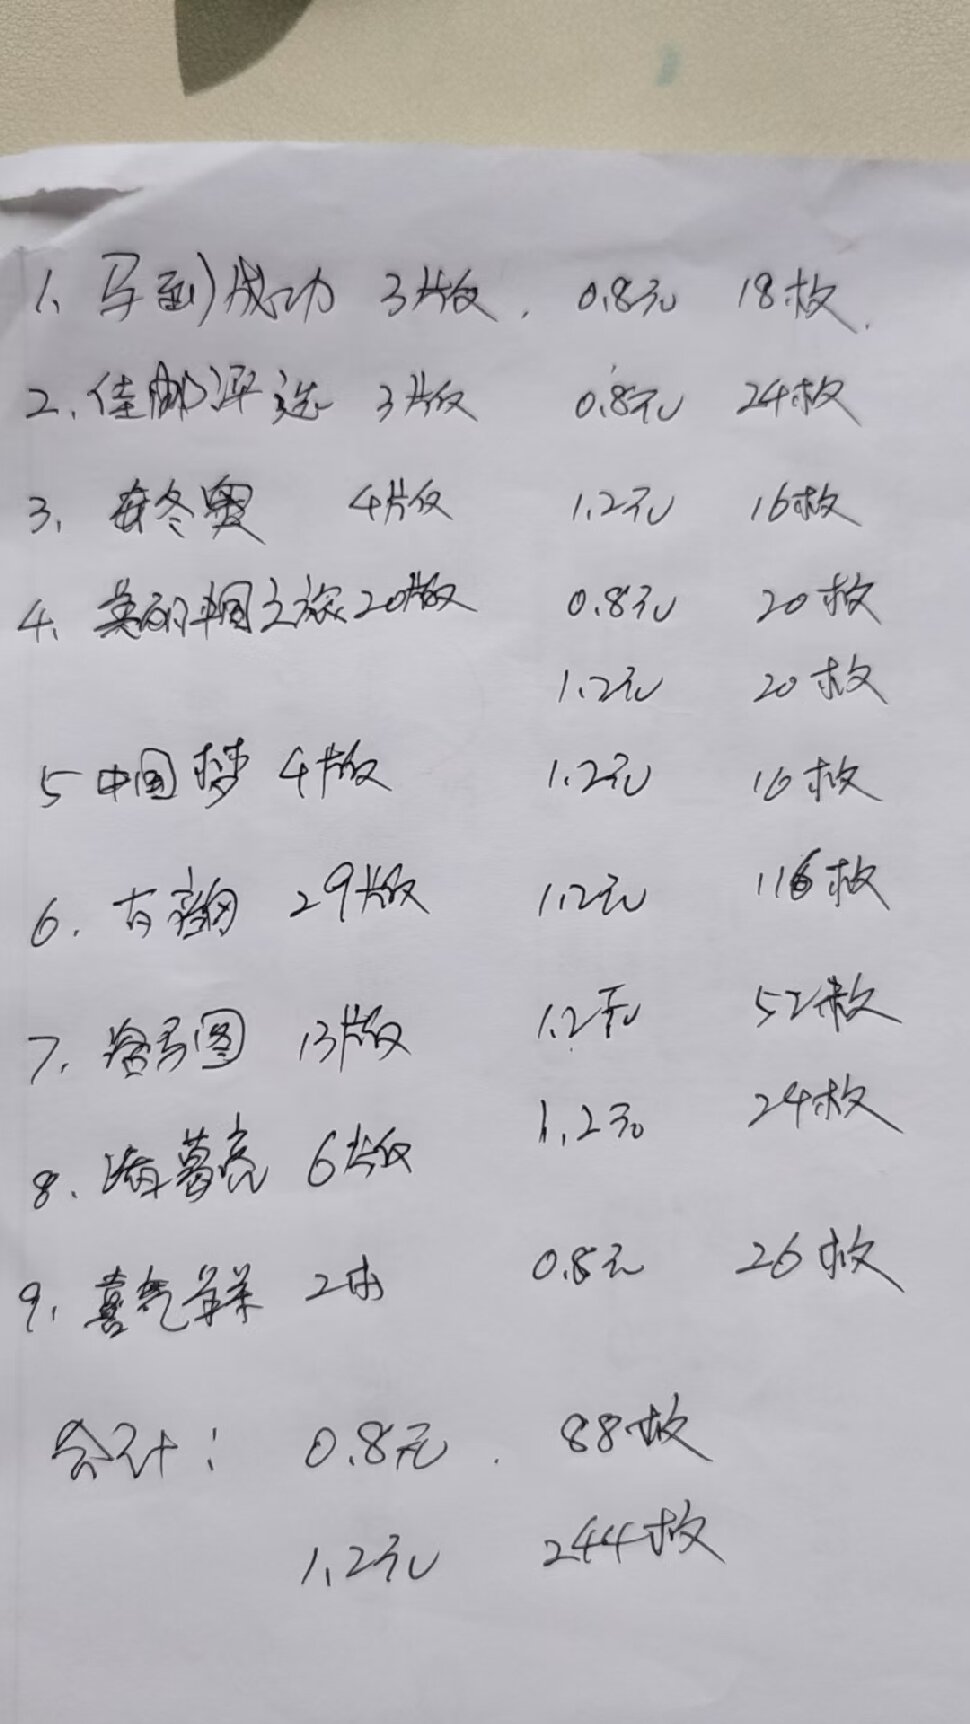 1、马到成功 3版. 0.8元 18枚.
2、佳邮评选 3版 0.8元 24枚
3、冬奥 4版 1.2元 16枚
4、美丽中国之旅 20版 0.8元 20枚
1.2元 20枚
5 中国梦 4版 1.2元 16枚
6. 古 29版 1.2元 116枚
7. 洛书图 13版 1.2元 52枚
8. 诸葛亮 6版 1.2元 24枚
9. 喜气羊羊 2本 0.8元 26枚
合计: 0.8元. 88枚
1.2元 244枚